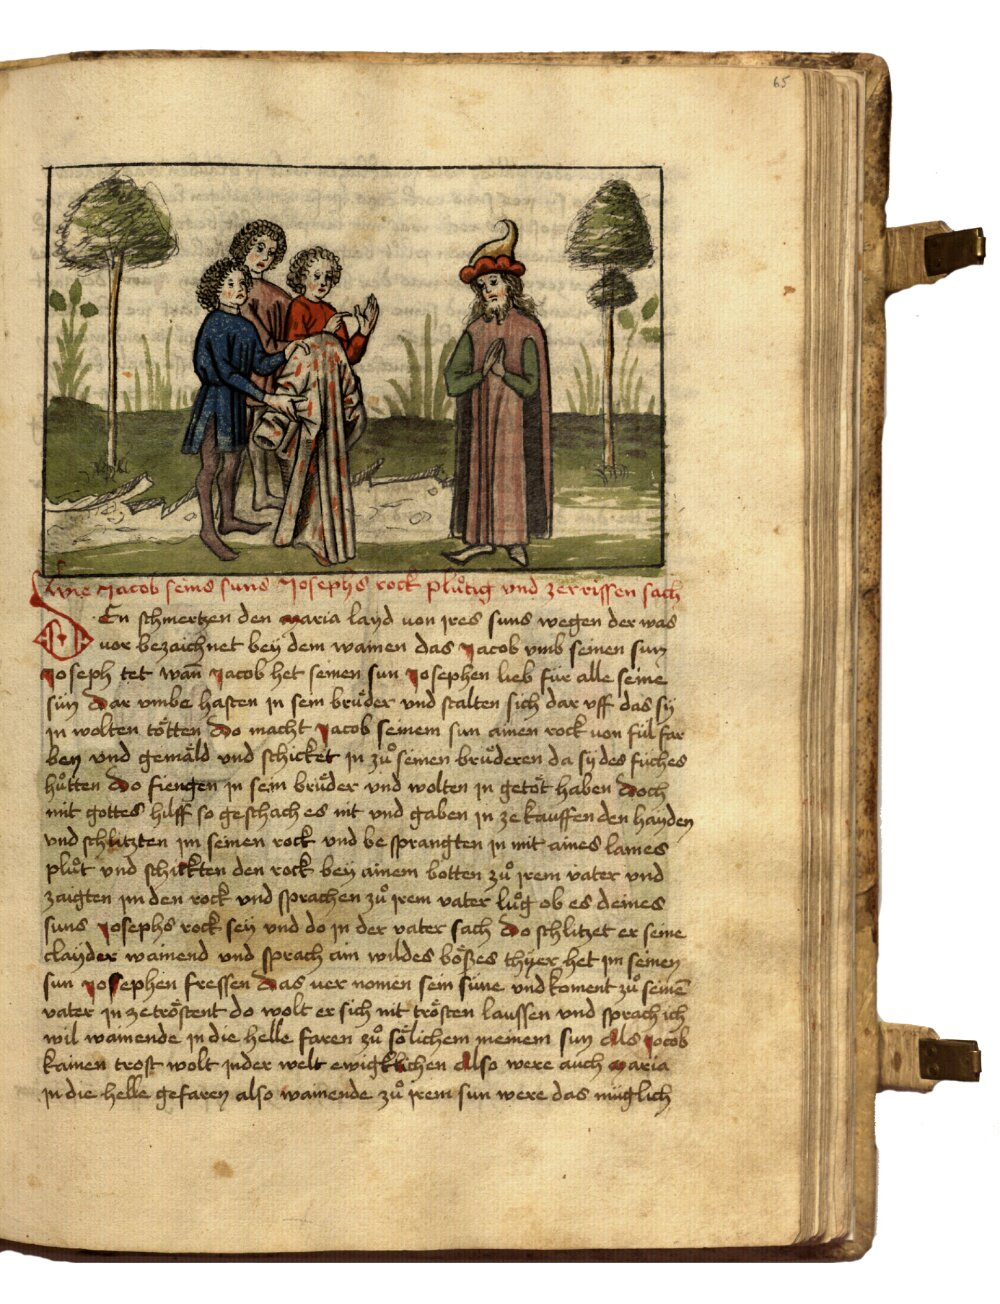 65
Wie Jacob seins suns Josephs rock plůtig vnd zerrissen sach
Den schmertzen den maria layd von ires suns wegen der was
vor bezaichnet bey dem wainen das Jacob vmb seinen sun
Joseph tet wañ Jacob het seinen sun Josephen lieb für alle seine
sün Dar vmbe hasten in sein brüder vnd stalten sich dar vff das sy
in wolten tötten Do macht Jacob seinem sun ainen rock von fül far
ben vnd gemäld vnd schicket in zů seinen brüderen da sy des fiches
hůtten Do fiengen in sein brüder vnd wolten in getöt haben Doch
mit gottes hilff so geschach es nit vnd gaben in ze kauffen den hayden
vnd schlitzten im seinen rock vnd besprangten in mit aines lames
plůt vnd schickten den rock bey ainem botten zů irem vater vnd
zaigten im den rock vnd sprachen zů irem vater lůg ob es deines
suns Josephs rock sey vnd do in der vater sach Do schlitzet er seine
clayder wainend vnd sprach ain wildes bößes thyer het im seinen
sun Josephen fressen Das ver nomen sein süne vnd koment zů seinē
vater in ze tröstent do wolt er sich nit trösten laussen vnd sprach ich
wil wainende in die helle faren zů sölichem meinem sun Als Jocob
kainen trost wolt in der welt ewigklichen Also were auch maria
in die helle gefaren also wainende zů irem sun were das müglich